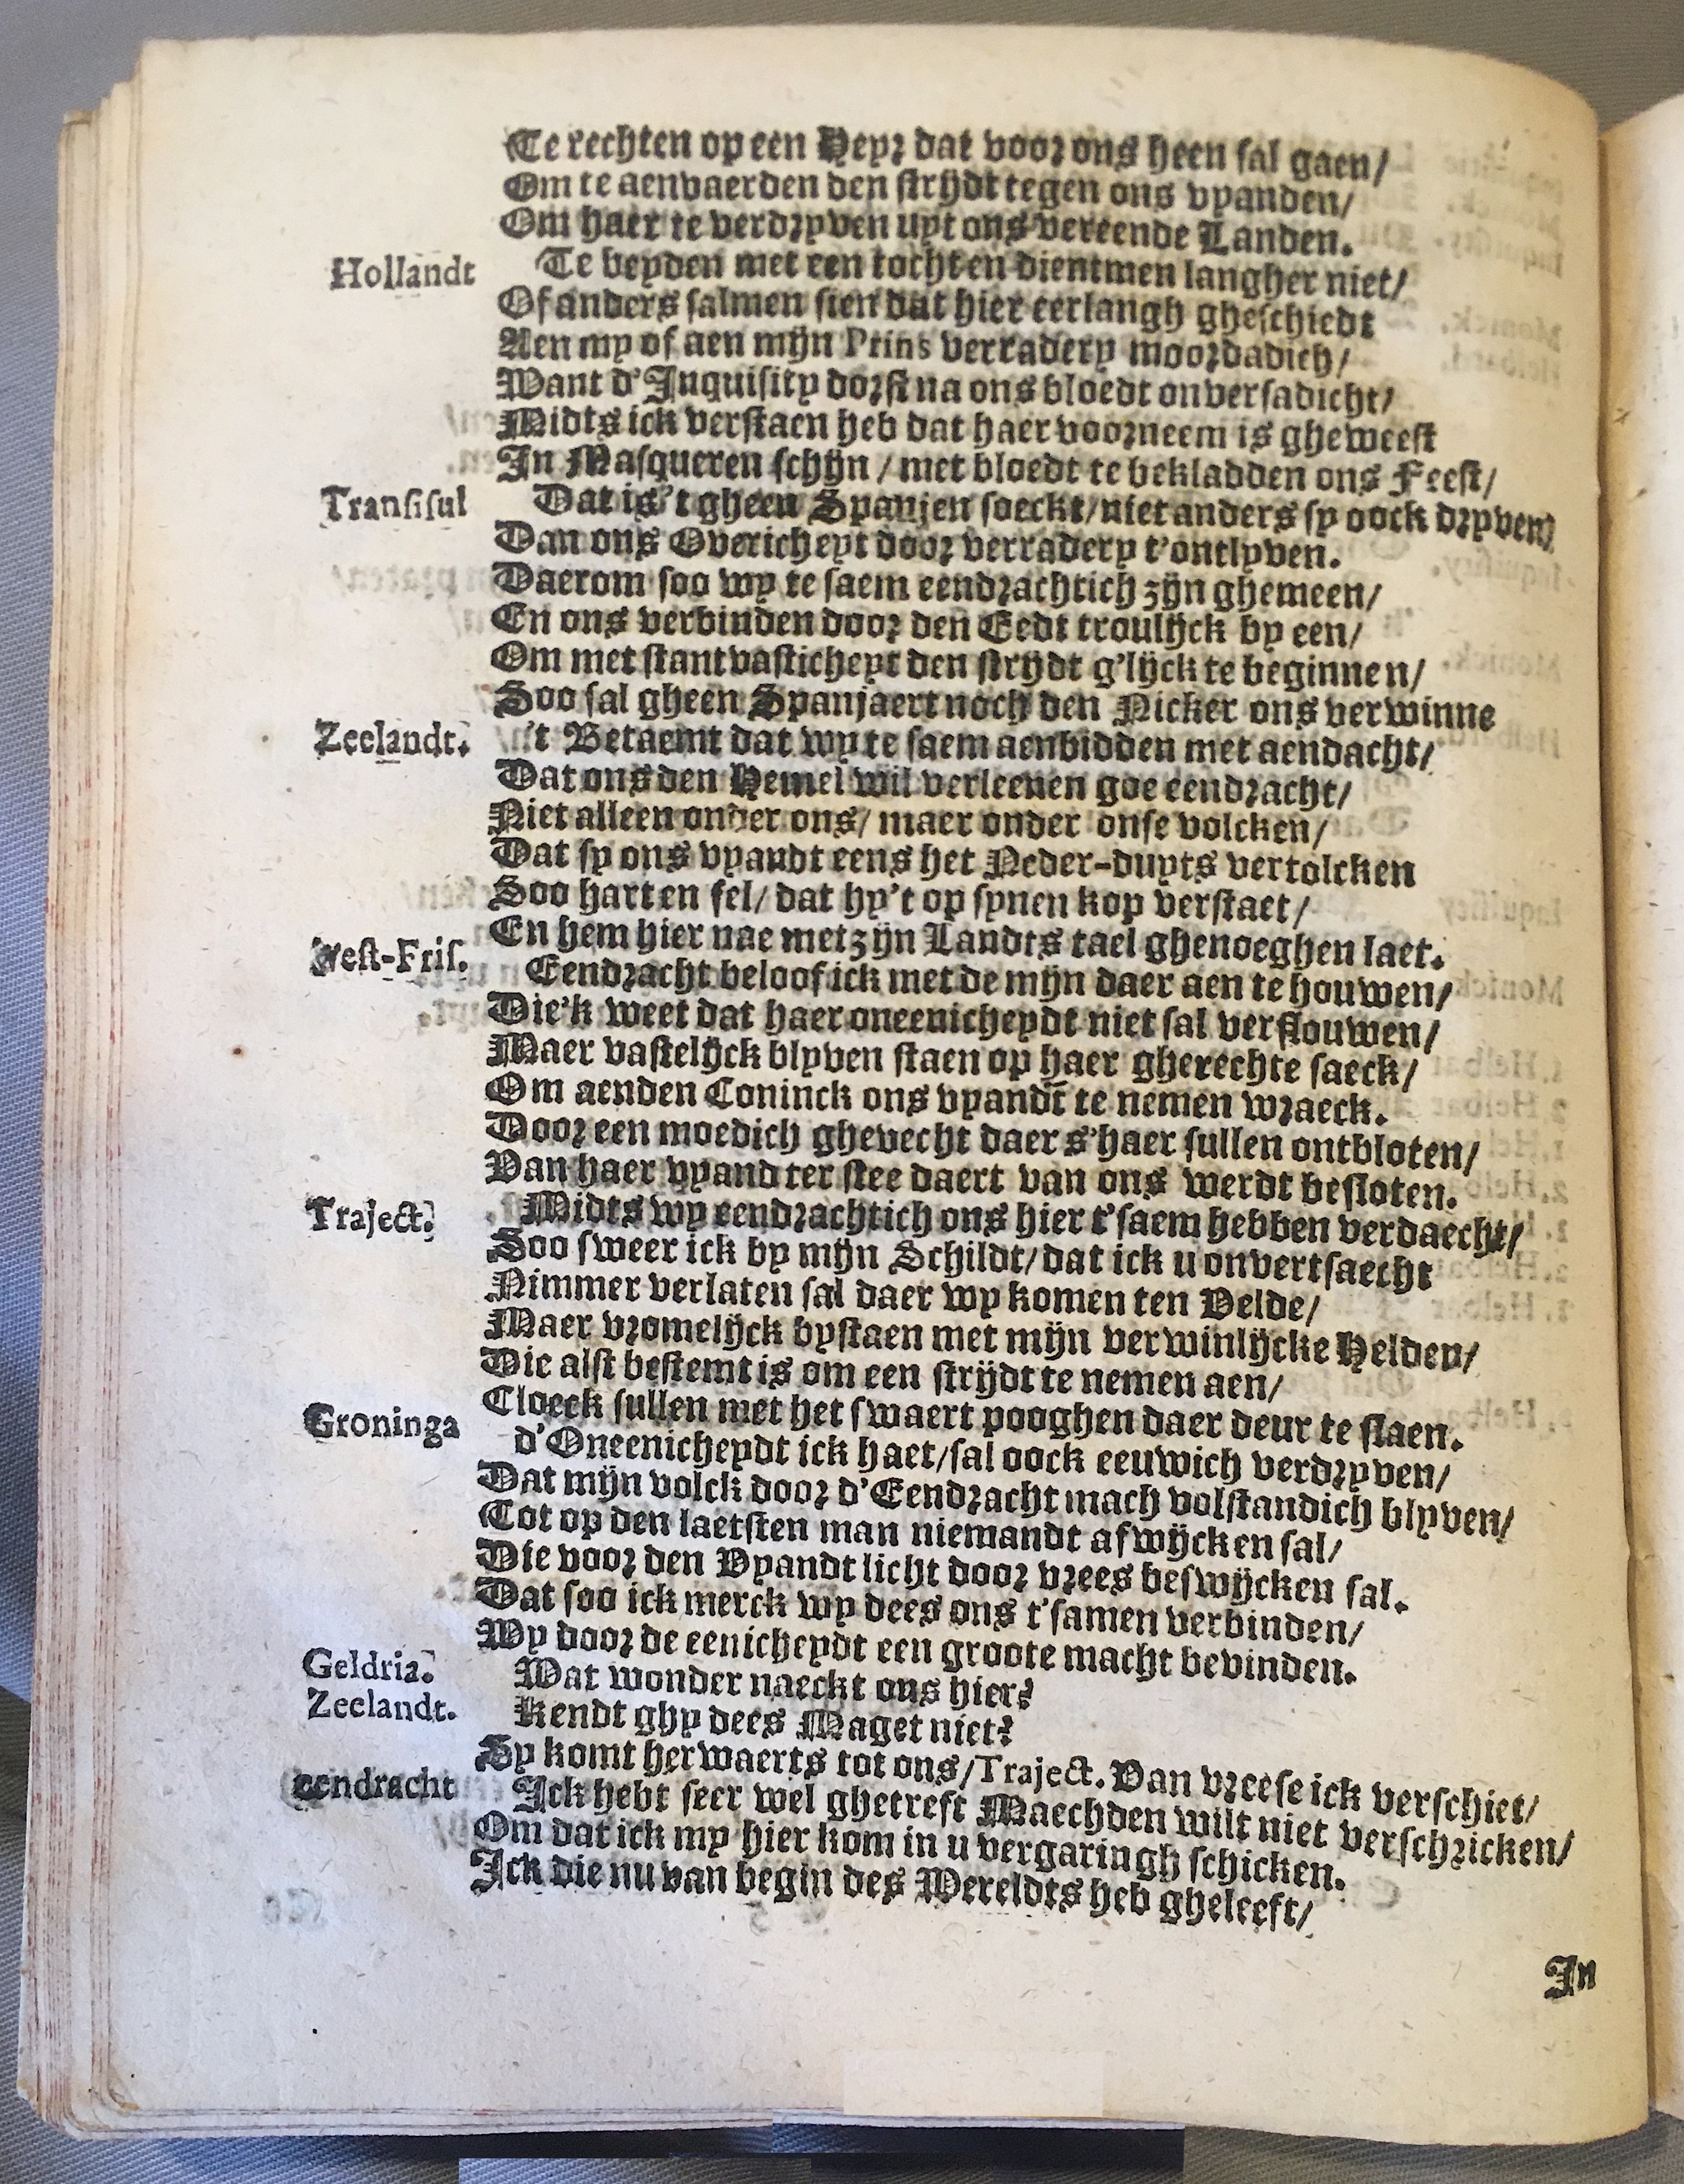 Te rechten op een Heyr dat voor ons heen sal gaen/
Om te aenvaerden den strijdt tegen ons vyanden/
Om haer te verdryven uyt ons vereende Landen.
Hollandt Te beyden met een tocht en dientmen langher niet/
Of anders salmen sien dat hier eerlangh gheschiedt
Aen my of aen mijn Prins verradery moordadich/
Want d'Inquisity dorst na ons bloedt onversadicht/
Midts ick verstaen heb dat haer voorneem is gheweest
In Masqueren schijn / met bloedt te bekladden ons Feest/
Transisul Dat is 't gheen Spanjen soeckt/ niet anders sy oock dryven/
Dan ons Overicheyt door verradery t'ontlyven.
Daerom soo wy te saem eendrachtich zijn ghemeen/
En ons verbinden door den Eedt troulijck by een/
Om met stantvasticheyt den strijdt g'lijck te beginnen/
Soo sal gheen Spanjaert noch den Nicker ons verwinne
Zeelandt. 't Betaemt dat wy te saem aenbidden met aendacht/
Dat ons den Hemel wil verleenen goe eendracht/
Niet alleen onder ons/ maer onder onse volcken/
Dat sy ons vyandt eens het Neder-duyts vertolcken
Soo hart en fel/ dat hy't op synen kop verstaet/
En hem hier nae met zijn Landts tael ghenoeghen laet.
West-Fris. Eendracht beloof ick met de mijn daer aen te houwen/
Die'k weet dat haer oneenicheydt niet sal verflouwen/
Maer vastelijck blyven staen op haer gherechte saeck/
Om aenden Coninck ons vyandt te nemen wraeck.
Door een moedich ghevecht daer s'haer sullen ontbloten/
Van haer vyand ter stee daert van ons werdt besloten.
Traject. Midts wy eendrachtich ons hier t'saem hebben verdaecht/
Soo sweer ick by mijn Schildt/ dat ick u onvertsaecht
Nimmer verlaten sal daer wy komen ten Velde/
Maer vromelijck bystaen met mijn verwinlijcke Helden/
Die alst bestemt is om een strijdt te nemen aen/
Cloeck sullen met het swaert pooghen daer deur te slaen.
Groninga d'Oneenicheydt ick haet/ sal oock eeuwich verdryven/
Dat mijn volck door d'Eendracht mach volstandich blyven/
Tot op den laetsten man niemandt afwijcken sal/
Die voor den Vyandt licht door vrees beswijcken sal.
Dat soo ick merck wy dees ons t'samen verbinden/
Wy door de eenicheydt een groote macht bevinden.
Geldria. Wat wonder naeckt ons hier?
Zeelandt. Kendt ghy dees Maget niet?
Sy komt herwaerts tot ons/ Traject. Van vreese ick verschiet/
eendracht Ick hebt seer wel ghetreft Maechden wilt niet verschricken/
Om dat ick my hier kom in u vergaringh schicken.
Ick die nu van begin des Wereldts heb gheleeft/
In